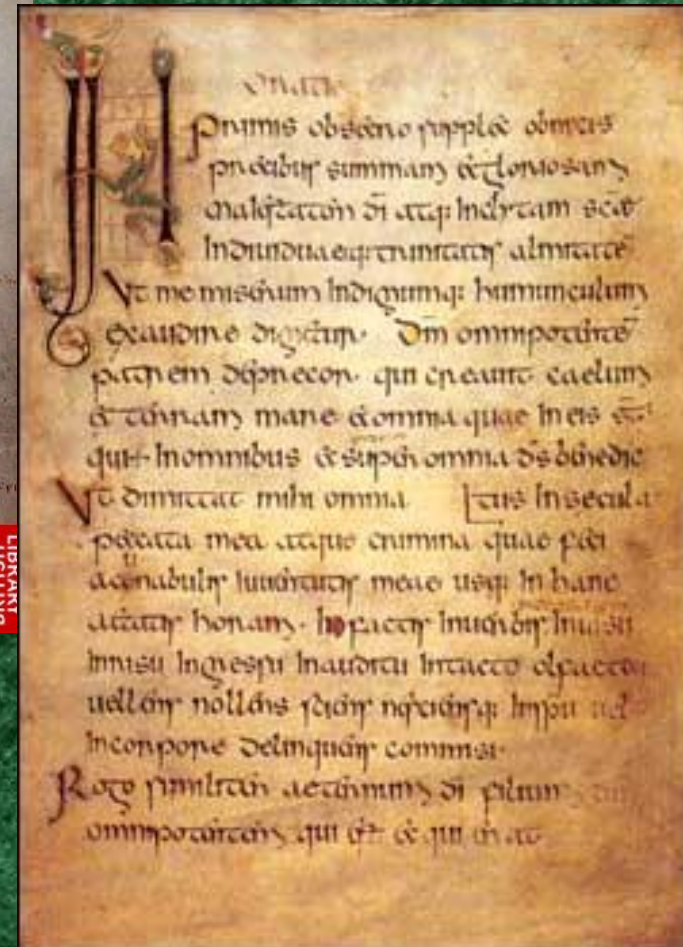 Oratio
In primis obsecro supplex obnixis
precibus summam & gloriosam
maiestatem dī atq: Inclytam scae
Indiuiduaeq: trinitatis almitatē
Ut me miserum Indignumq: humunculum
exaudire dignetur· Dm omnipotentē
patrem deprecor· qui creauit caelum
& terram mare & omnia quae In eis
qui In omnibus & super omnia ds benedic
Ut dimittat mihi omnia tus In secula
peccata mea atque crimina quae feci
a cunabulis iuuentutis meae usq: In hanc
aetatis horam· In factis In uerbis In
In uisu In gressu In auditu In tacto olfacto
uellens nollens sciens nesciensq: In spu uel
In corpore delinquens commisi·
Rogo similiter aeternum di filium
omnipotentem qui & qui erat
LIBRARY